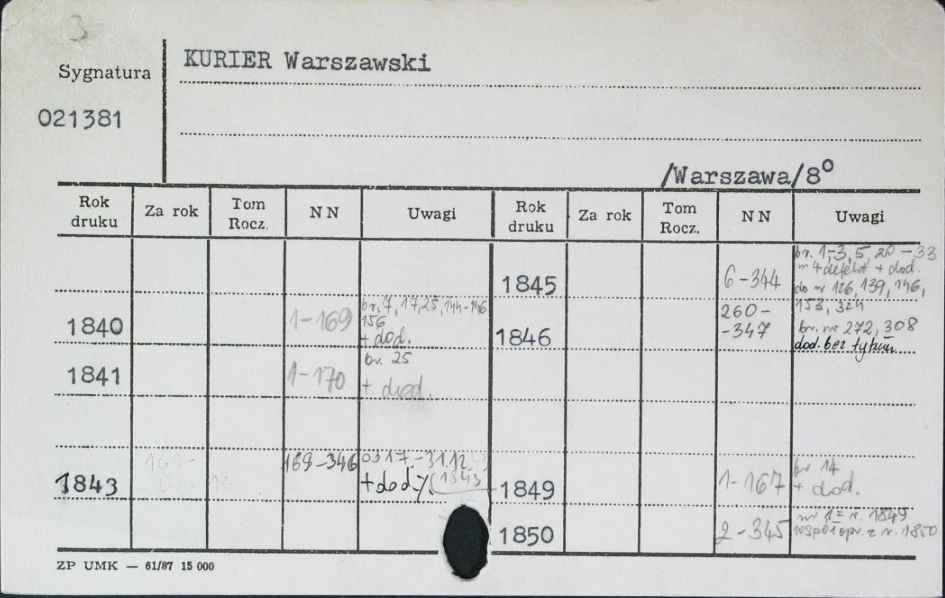 3
KURIER Warszawski
Sygnatura
021381
/Warszawa/8°
Rok druku Za rok Tom Rocz. NN Uwagi Rok druku Za rok Tom Rocz. NN Uwagi
1840 1-169 br. 7, 17, 25, 144-146
156
+ dod.
1841 1-170 br. 25
+ dod.
1843 169-346
+dod.
1845 6-344 br. 1-3, 5, 20-33
+ dod.
do nr 126, 139, 146,
153, 324
1846 260-
-347
br. nr 272, 308
dod. bez tytułu
1849 1-167 br 14
+ dod.
1850 2-345 r. 1849
współopr. z r. 1850
ZP UMK — 61/87 15 000